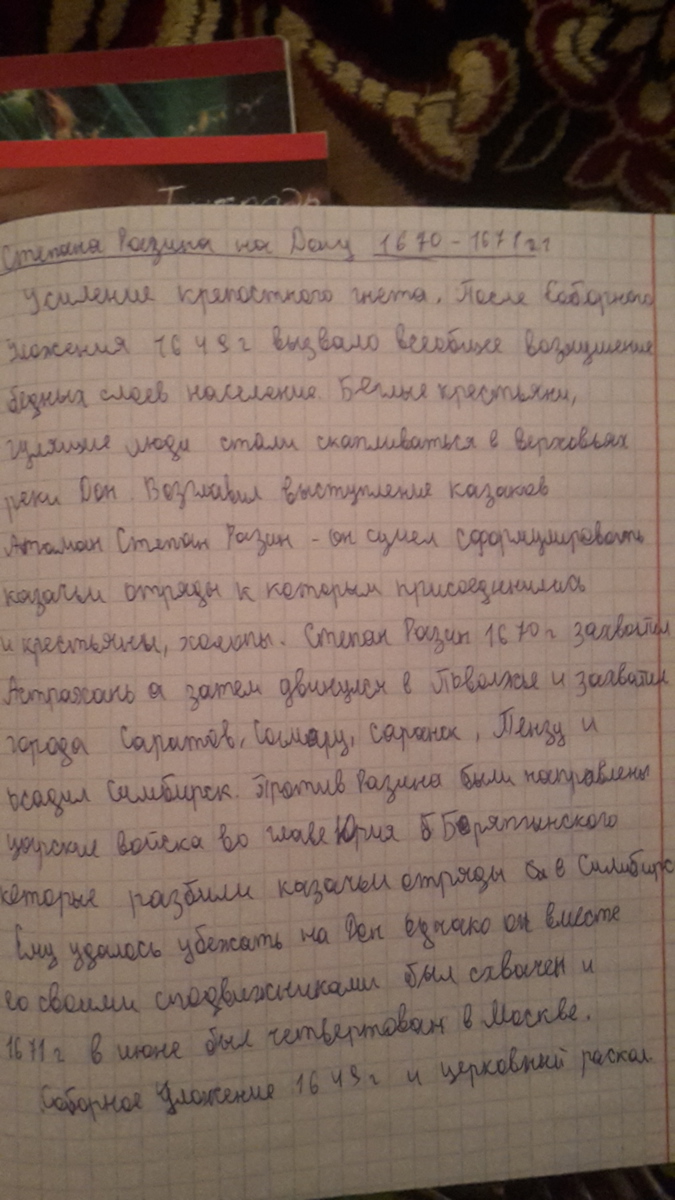 Тетрадь
Степана Разина на Дону 1670 - 1671гг
Усиление крепостного гнета. После Соборного
Уложения 1649г вызвало всеобщее возмущение
бедных слоев население. Беглые крестьяни,
гулящие люди стали скапливаться в верховьях
реки Дон. Возглавил выступление казаков
Атаман Степан Разин - он сумел сформулировать
казачьи отряды к которым присоединились
и крестьяны, холопы. Степан Разин 1670г захватил
Астрахань а затем двинулся в Поволжье и захватил
города Саратов, Самару, Саранск, Пензу и
осадил Симбирск. Против Разина были направлены
царские войска во главе Юрия Б Борятинского
которые разбили казачьи отряды в Симбирс
Ему удалось убежать на Дон однако он вместе
со своими сподвижниками был схвачен и
1671г в июне был четвертован в Москве.
Соборное Уложение 1649г и церковный раскол.